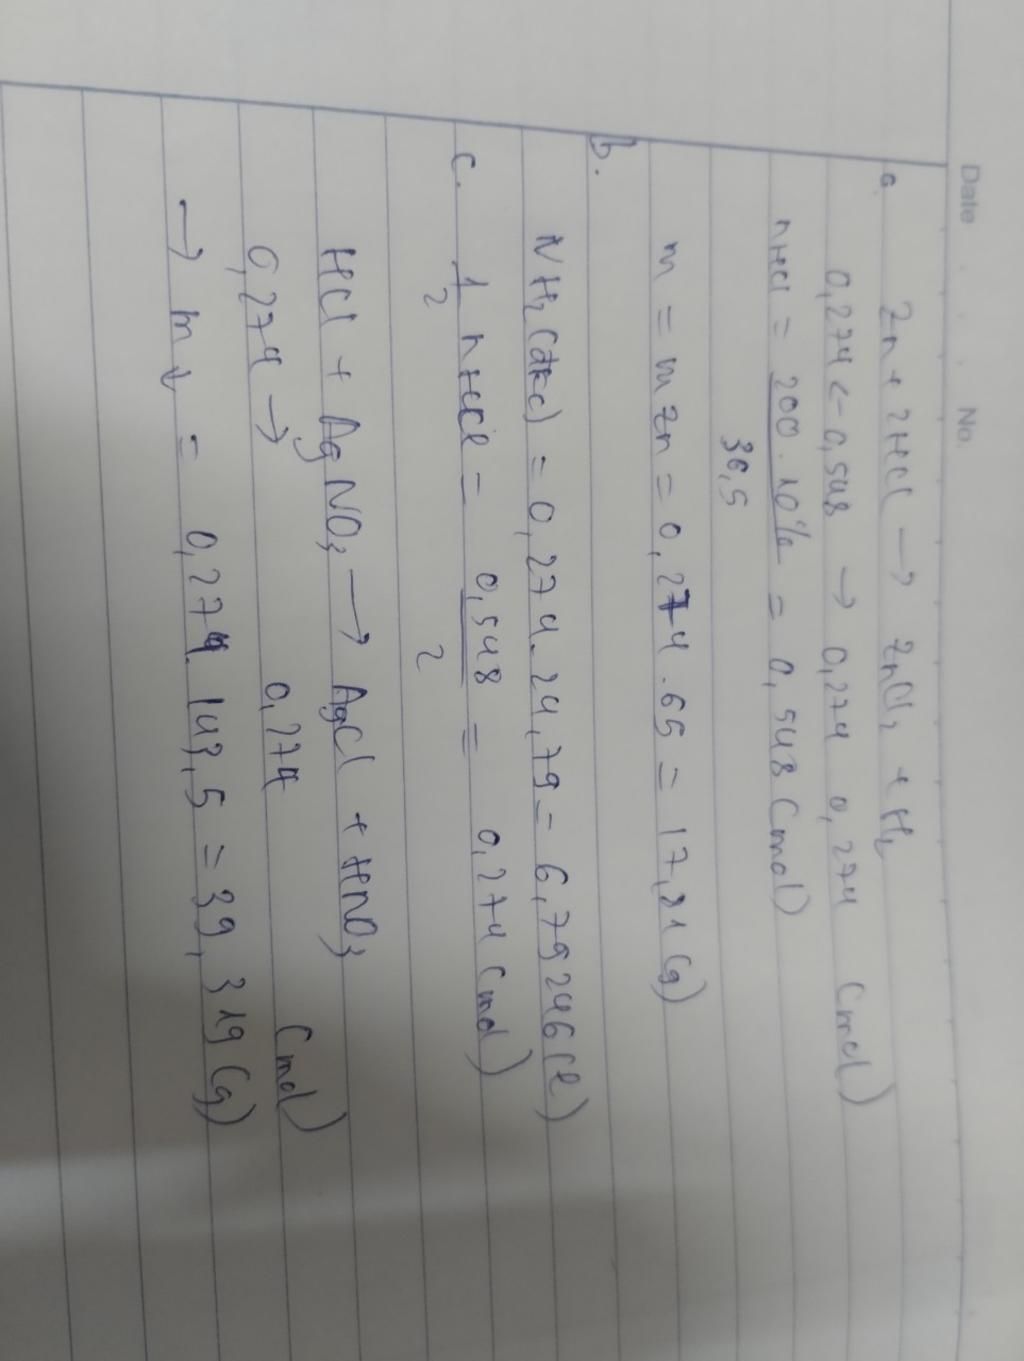 Date No.
a. Zn + 2HCl → ZnCl2 + H2
0,274 <- 0,548 → 0,274 0,274 (mol)
nHCl = 200 . 10% / 36,5 = 0,548 (mol)
m = mZn = 0,274 . 65 = 17,81 (g)
b. NH2(đkc) = 0,274 . 24,79 = 6,79246 (l)
c. 1/2 nHCl = 0,548/2 = 0,274 (mol)
HCl + AgNO3 → AgCl + HNO3
0,274 → 0,274 (mol)
→ m↓ = 0,274 . 143,5 = 39,319 (g)